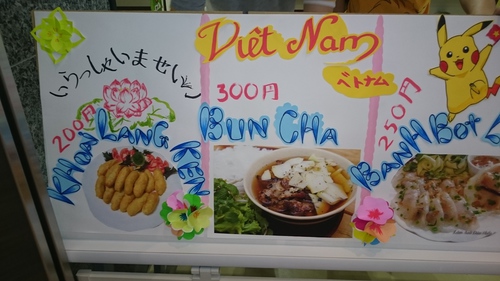 いらっしゃいませい
Việt Nam
ベトナム
200円
KHOAI LANG
KEN
300円
BUN CHA
250円
BANH BOT